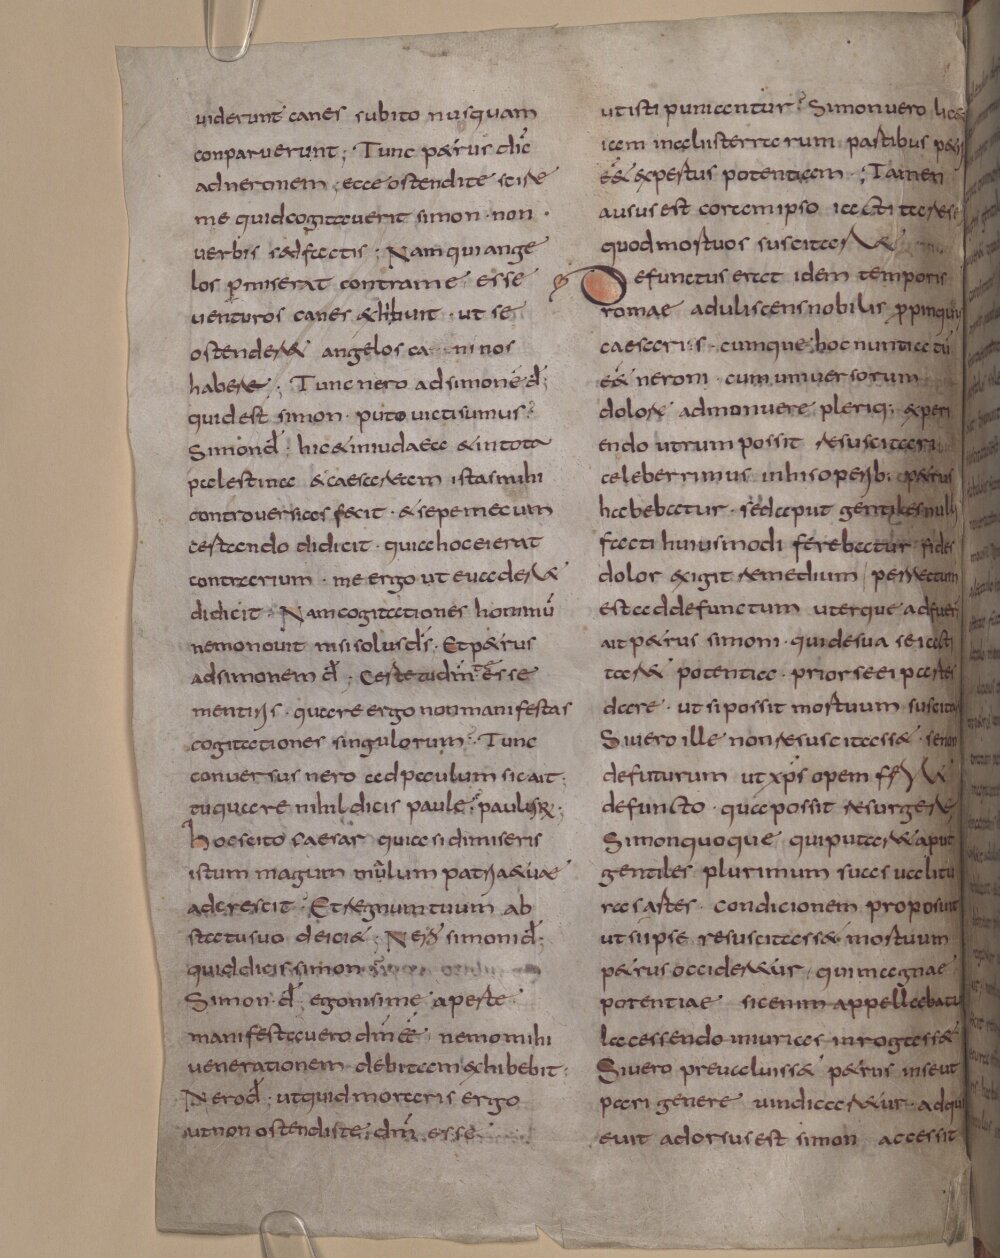 uiderunt canes subito nusquam
conparuerunt ; Tunc petrus dic̃
ad neronem ; ecce ostendite scire
me quid cogitauerit simon · non ·
uerbis sed factis ; Nam qui ange
los p̱miserat contra me esse
uenturos canes exhibuit · ut se
ostenderet angelos ca ninos
habere ; Tunc nero ad simonē d̄ ;
quid est simon · puto uicti sumus ·
Simon d̄ · hic & in iudaea & in tota
palestina & caesarea tam ista mihi
controuersias fecit · & sepe mecum
certando didicit · quia hoc ei erat
contrarium · me ergo ut euaderet
didicit · Nam cogitationes hominū
nemo nouit nisi solus d̄s · Et petrus
ad simonem d̄ ; Certe tu dm̄ te esse
mentiris · quare ergo non manifestas
cogitationes singulorum · Tunc
conuersus nero ad paulum sic ait ;
tu quare nihil dicis paule · paulus r̄ ;
hoc scito caesar quia si dimiseris
istum magum malum patriae tuae
adcrescit · Et regnum tuum ab
statu suo deiciet ; Nero simoni d̄ ;
quid dicis simon
Simon · d̄ · ego nisi me aperte
manifestauero dm̄ ēē nemo mihi
uenerationem debitam exhibebit ;
Nero d̄ · ut quid moraris ergo
aut non ostendis te dm̄ esse
ut isti puniantur · Simon uero
potentiam ; Tamen
ausus est coram ipso iactitare se
quod mortuos suscitaret
Defunctus erat idem temporis
romae aduliscens nobilis p̱pinquus
caesaris · cumque hoc nuntiatū
e&neroni · cum uniuersorum
dolore admonuere pleriq; experi
endo utrum possit resuscitari
celeberrimus in his operib; petrus
habebatur · sed aput gentiles nulli
facti huiusmodi ferebatur fides
dolor exigit remedium perrectum
est ad defunctum uterque adfuer
ait petrus simoni · qui de sua se iacti
taret potentia · prior se ei partes
dare · ut si possit mortuum suscita
Si uero ille non resuscitasset · se non
defuturum ut xp̄s opem ferret
defuncto · quae possit resurgere
Simon quoque qui putaret aput
gentiles plurimum
condicionem proposuit
ut si ipse resuscitasset mortuum
petrus occideretur qui magnae
potentiae sic enim appellabatur
lacessendo iniurias inrogasset
Si uero preualuisset petrus in se ut
pari genere uindicaretur · adqui
euit adorsus est simon accessit